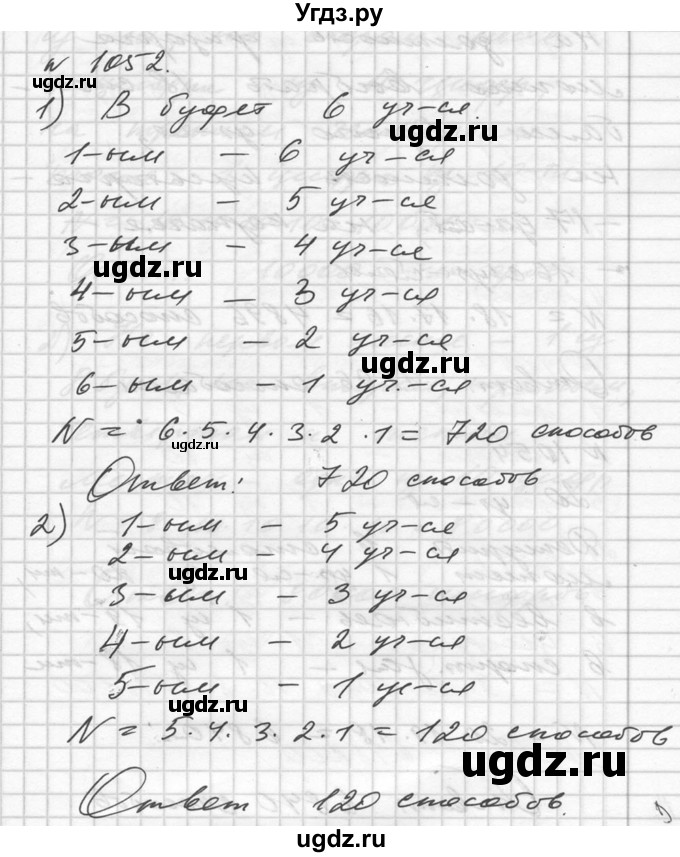 Угдз.ру
№ 1052.
1) В буфет 6 уч-ся.
ugdz.ru
1-ым – 6 уч-ся
2-ым – 5 уч-ся
ugdz.ru
3-ым – 4 уч-ся
ugdz.ru
4-ым – 3 уч-ся
5-ым – 2 уч-ся
ugdz.ru
6-ым – 1 уч.-ся
N = 6·5·4·3·2·1 = 720 способов
ugdz.ru
Ответ: 720 способов
2) 1-ым – 5 уч-ся
2-ым – 4 уч-ся
ugdz.ru
3-ым – 3 уч-ся
4-ым – 2 уч-ся
5-ым – 1 уч-ся
ugdz.ru
N = 5·4·3·2·1 = 120 способов
ugdz.ru
Ответ 120 способов.
ugdz.ru